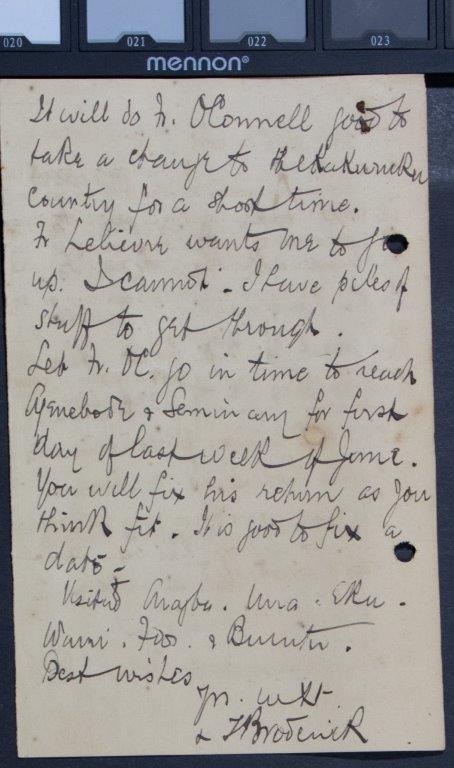 020 021 022 023
mennon®
It will do Fr. O'Connell good to
take a change to the Kukuruku
country for a short time.
Fr Lelievre wants me to go
up. I cannot. I have piles of
stuff to get through.
Let Fr. OC. go in time to reach
Agenebode & Seminary for first
day of last week of June.
You will fix his return as you
think fit. It is good to fix a
date.
Visited Aragba. Urua. Eku.
Warri. &
Best wishes
Yrs. in Xt.
+ T Broderick